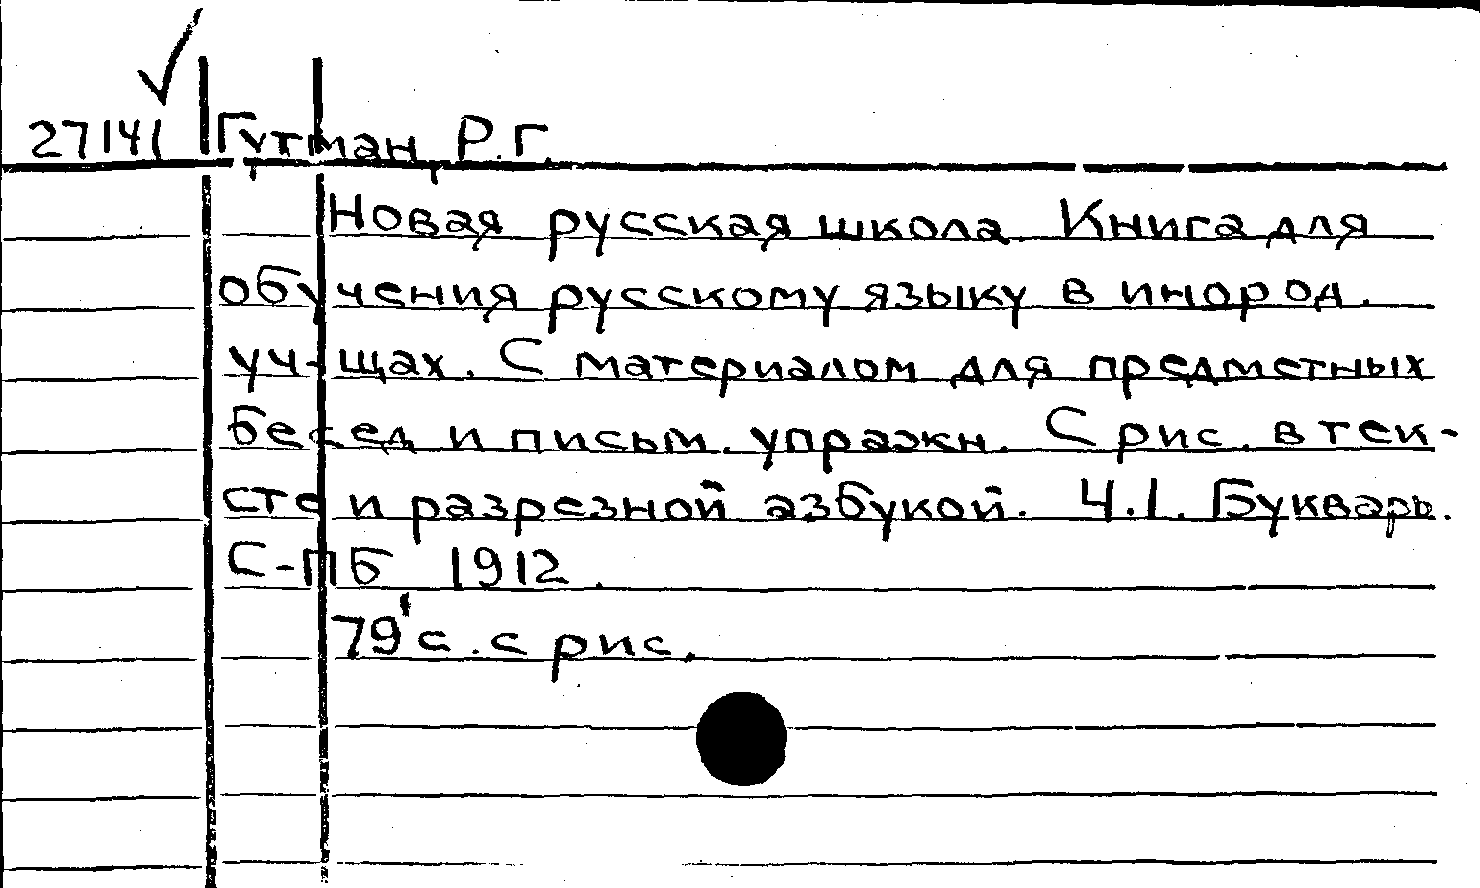 27141 Гутман, Р.Г.
Новая русская школа. Книга для
обучения русскому языку в инород.
уч-щах. С материалом для предметных
бесед и письм. упражн. С рис. в тек-
сте и разрезной азбукой. Ч.1. Букварь.
С-ПБ 1912.
79 с. с рис.